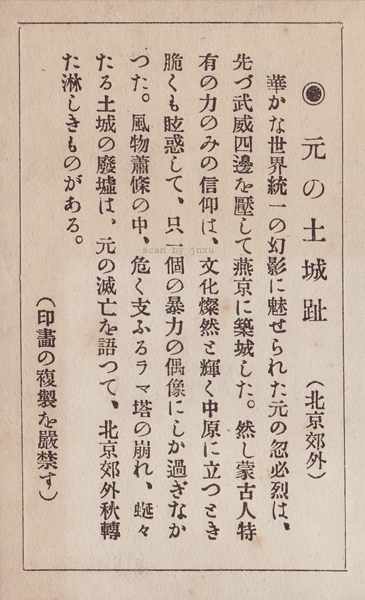 ◉ 元の土城趾 (北京郊外)
華かな世界統一の幻影に魅せられた元の忽必烈は、
先づ武威四邊を壓して燕京に築城した。然し蒙古人特
有の力のみの信仰は、文化燦然と輝く中原に立つとき
脆くも眩惑して、只一個の暴力の偶像にしか過ぎなか
つた。風物蕭條の中、危く支ふるラマ塔の崩れ、蜒々
たる土城の廢墟は、元の滅亡を語つて、北京郊外秋轉
た淋しきものがある。
(印畫の複製を嚴禁す)
scan by jnxu